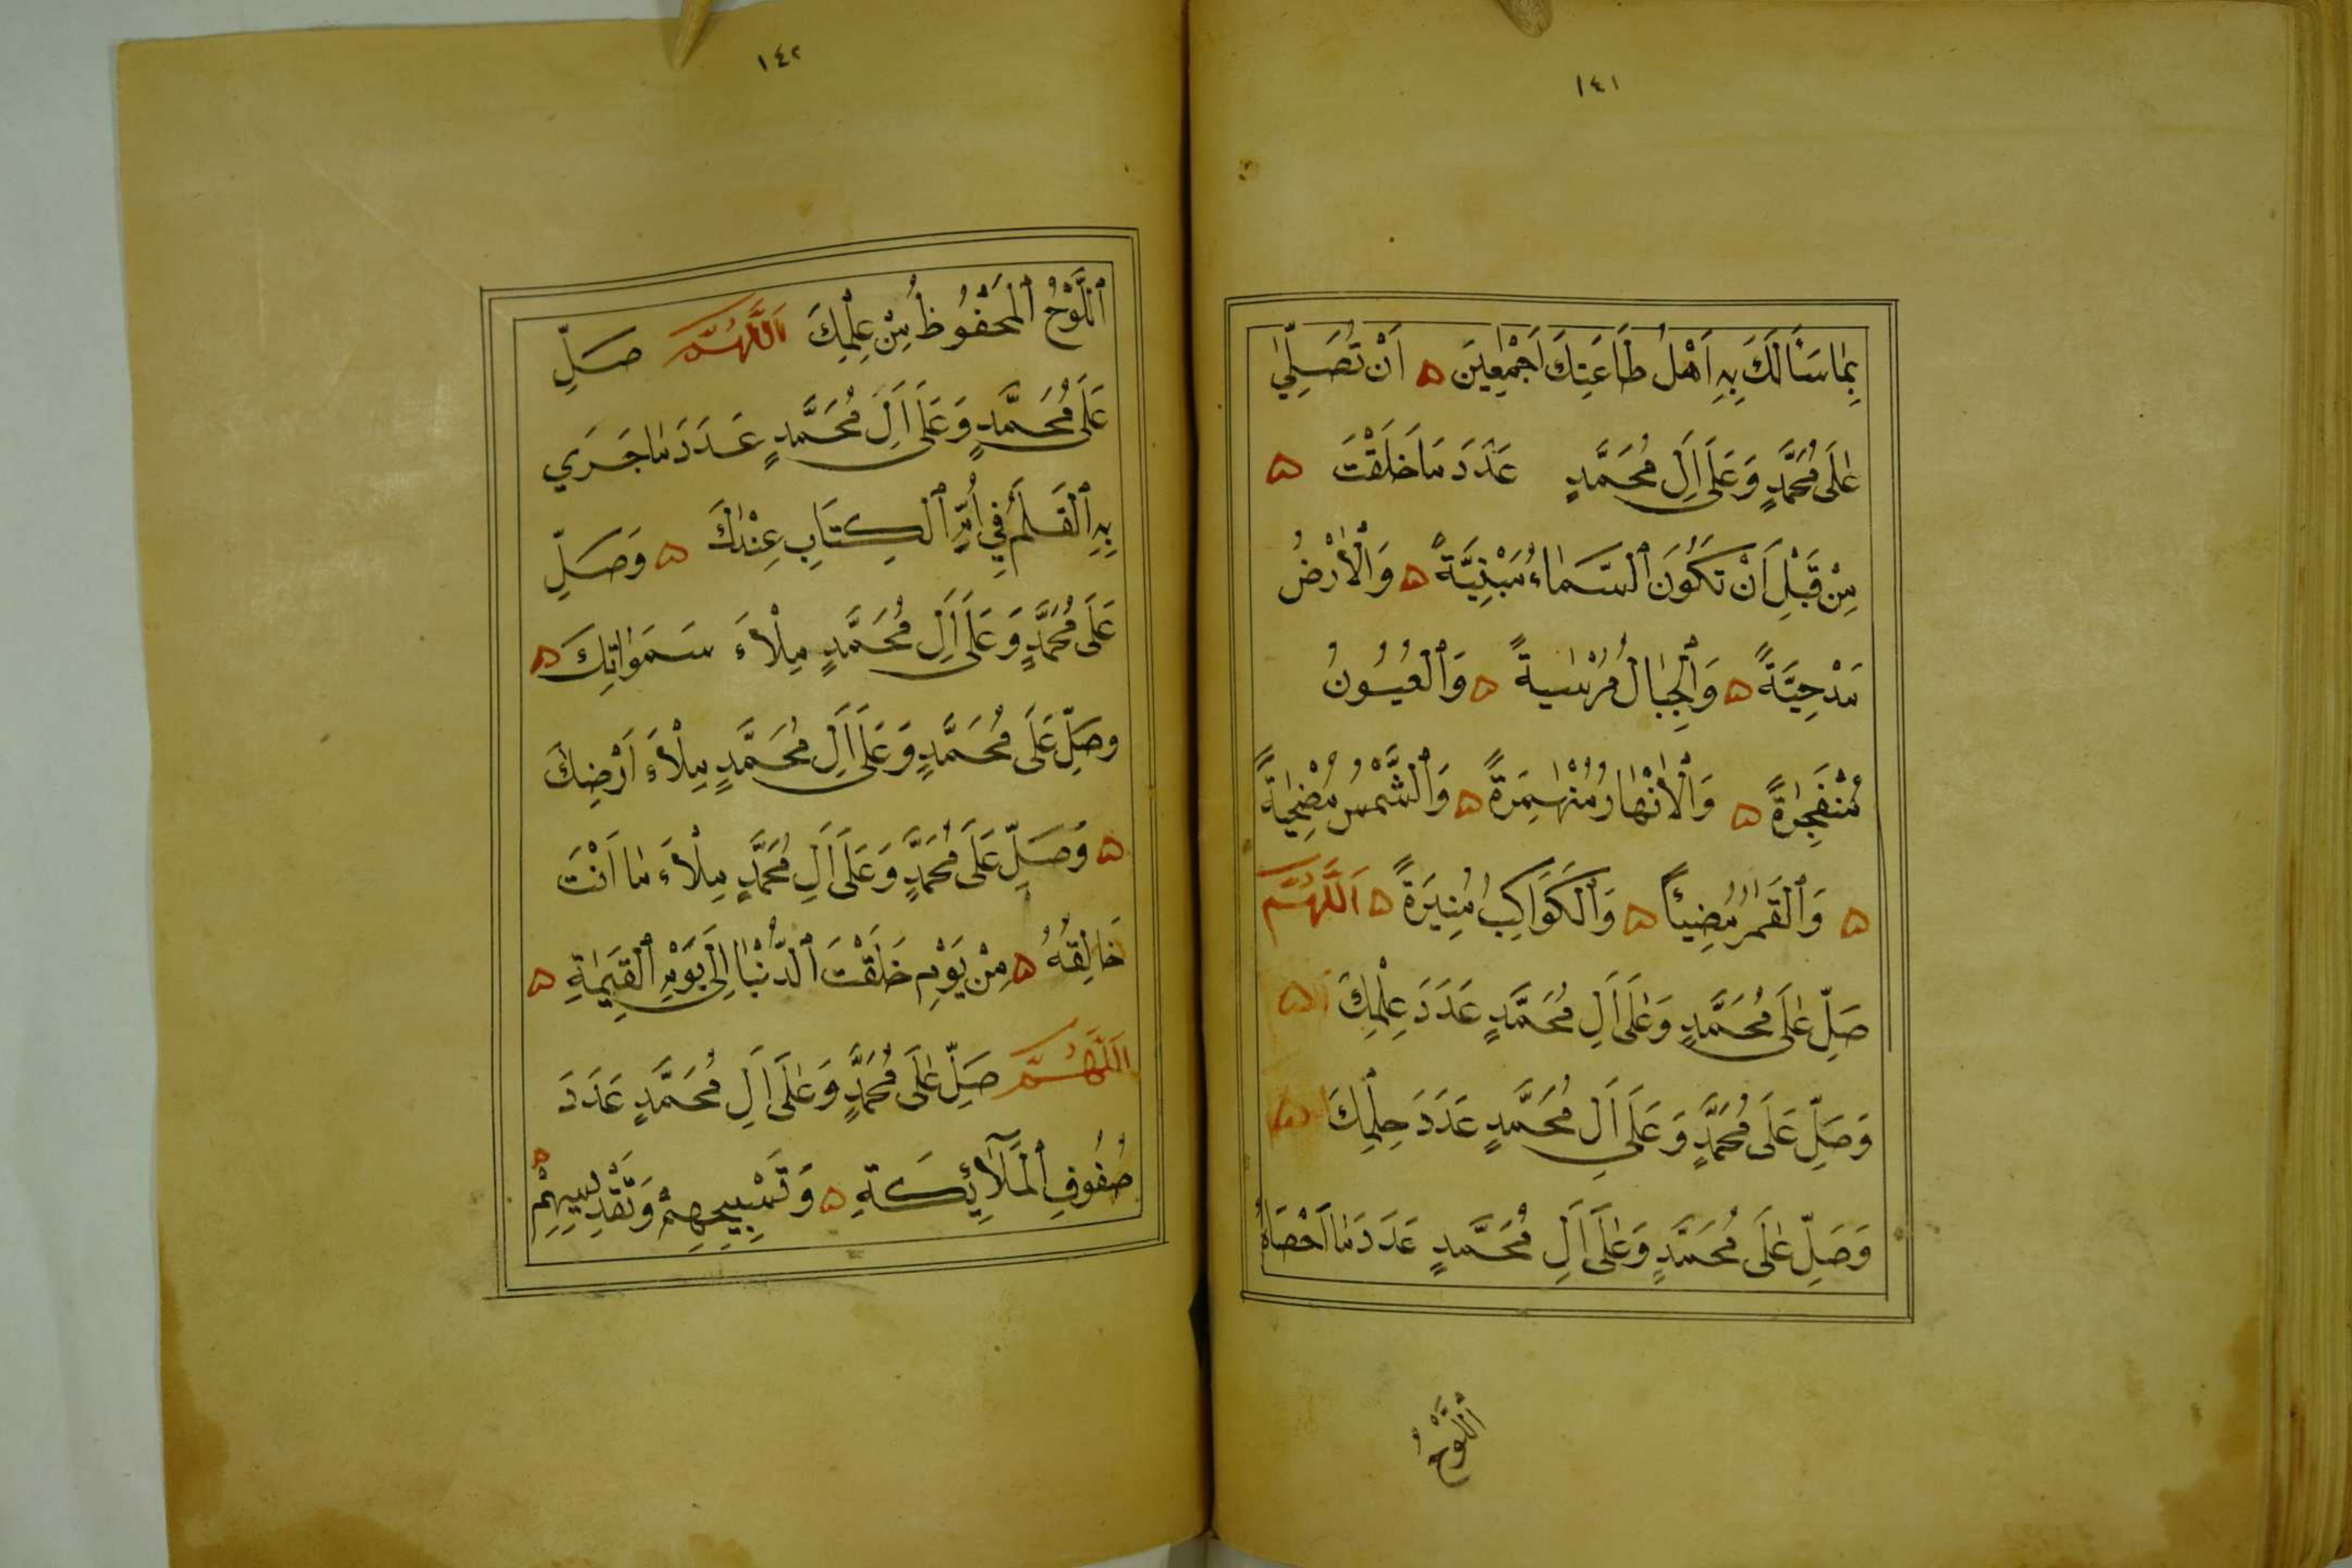 ١٤١
بِمَا سَأَلَكَ بِهِ اَهْلُ طَاعَتِكَ اَجْمَعِينَ ۵ اَنْ تُصَلِّيَ
عَلَى مُحَمَّدٍ وَعَلَى اَلِ مُحَمَّدٍ عَدَدَ مَا خَلَقْتَ ۵
مِنْ قَبْلِ اَنْ تَكُونَ ٱلسَّمَاءُ مَبْنِيَّةً ۵ وَٱلْاَرْضُ
مَدْحِيَّةً ۵ وَٱلْجِبَالُ مُرْسَيةً ۵ وَٱلْعُيُونُ
مُنْفَجِرَةً ۵ وَٱلْاَنْهَارُ مُنْهَمِرَةً ۵ وَٱلشَّمْسُ مُضْحِيَةً
۵ وَٱلْقَمَرُ مُضِيئًا ۵ وَٱلْكَوَاكِبُ مُنِيرَةً ۵ اَللَّهُمَّ
صَلِّ عَلَى مُحَمَّدٍ وَعَلَى اَلِ مُحَمَّدٍ عَدَدَ عِلْمِكَ ۵
وَصَلِّ عَلَى مُحَمَّدٍ وَعَلَى اَلِ مُحَمَّدٍ عَدَدَ حِلْمِكَ ۵
وَصَلِّ عَلَى مُحَمَّدٍ وَعَلَى اَلِ مُحَمَّدٍ عَدَدَ مَا اَحْصَاهُ
ٱللَّوْحُ
١٤٢
ٱللَّوْحُ ٱلْمَحْفُوظُ مِنْ عِلْمِكَ اَللَّهُمَّ صَلِّ
عَلَى مُحَمَّدٍ وَعَلَى اَلِ مُحَمَّدٍ عَدَدَ مَا جَرَي
بِهِ ٱلْقَلَمُ فِي اُمِّ ٱلْكِتَابِ عِنْدَكَ ۵ وَصَلِّ
عَلَى مُحَمَّدٍ وَعَلَى اَلِ مُحَمَّدٍ مِلْاَءَ سَمَوَاتِكَ ۵
وصَلِّ عَلَى مُحَمَّدٍ وَعَلَى اَلِ مُحَمَّدٍ مِلْاَءَ اَرْضِكَ
۵ وَصَلِّ عَلَى مُحَمَّدٍ وَعَلَى اَلِ مُحَمَّدٍ مِلْاَءَ مَا اَنْتَ
خَالِقُهُ ۵ مِنْ يَوْمِ خَلَقْتَ ٱلدُّنْيَا اِلَى يَوْمِ ٱلْقِيَمَةِ ۵
اَللَّهُمَّ صَلِّ عَلَى مُحَمَّدٍ وَعَلَى اَلِ مُحَمَّدٍ عَدَدَ
صُفُوفِ ٱلْمَلَآئِكَةِ ۵ وَتَسْبِيحِهِمْ وَتَقْدِيسِهِمْ ۵